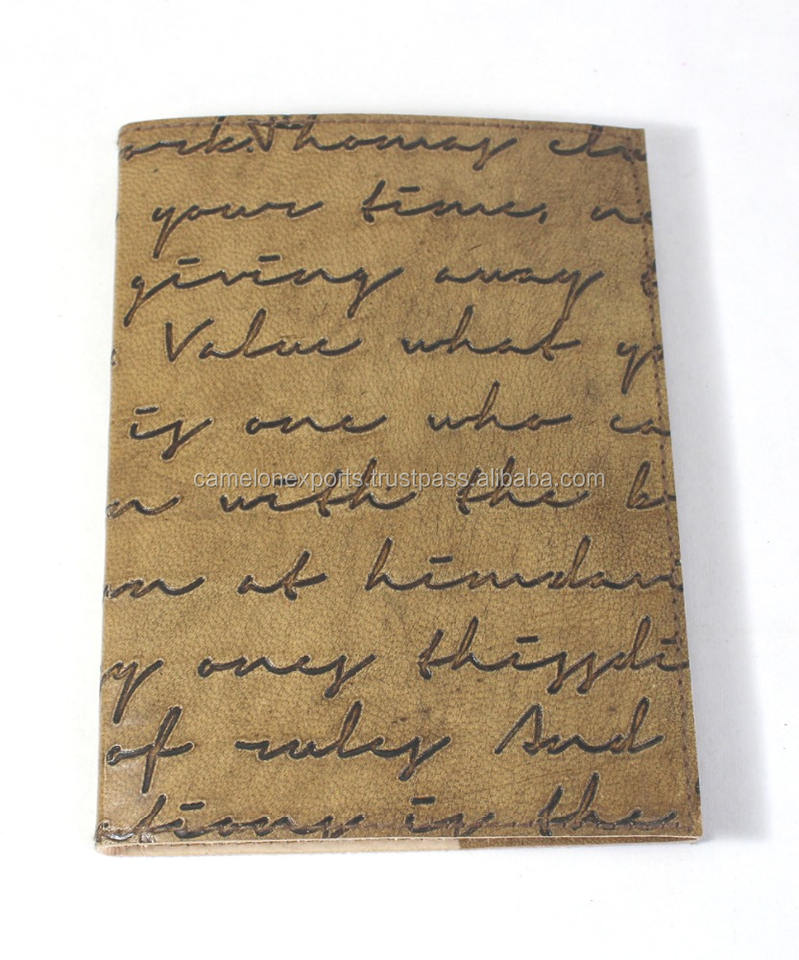 ork.Thomas
your time,
giving away
Value what
is one who ca
camelonexports.trustpass.alibaba.com
n with the b
n at himdavi
y ones thissdi
of rules And
ctions is the